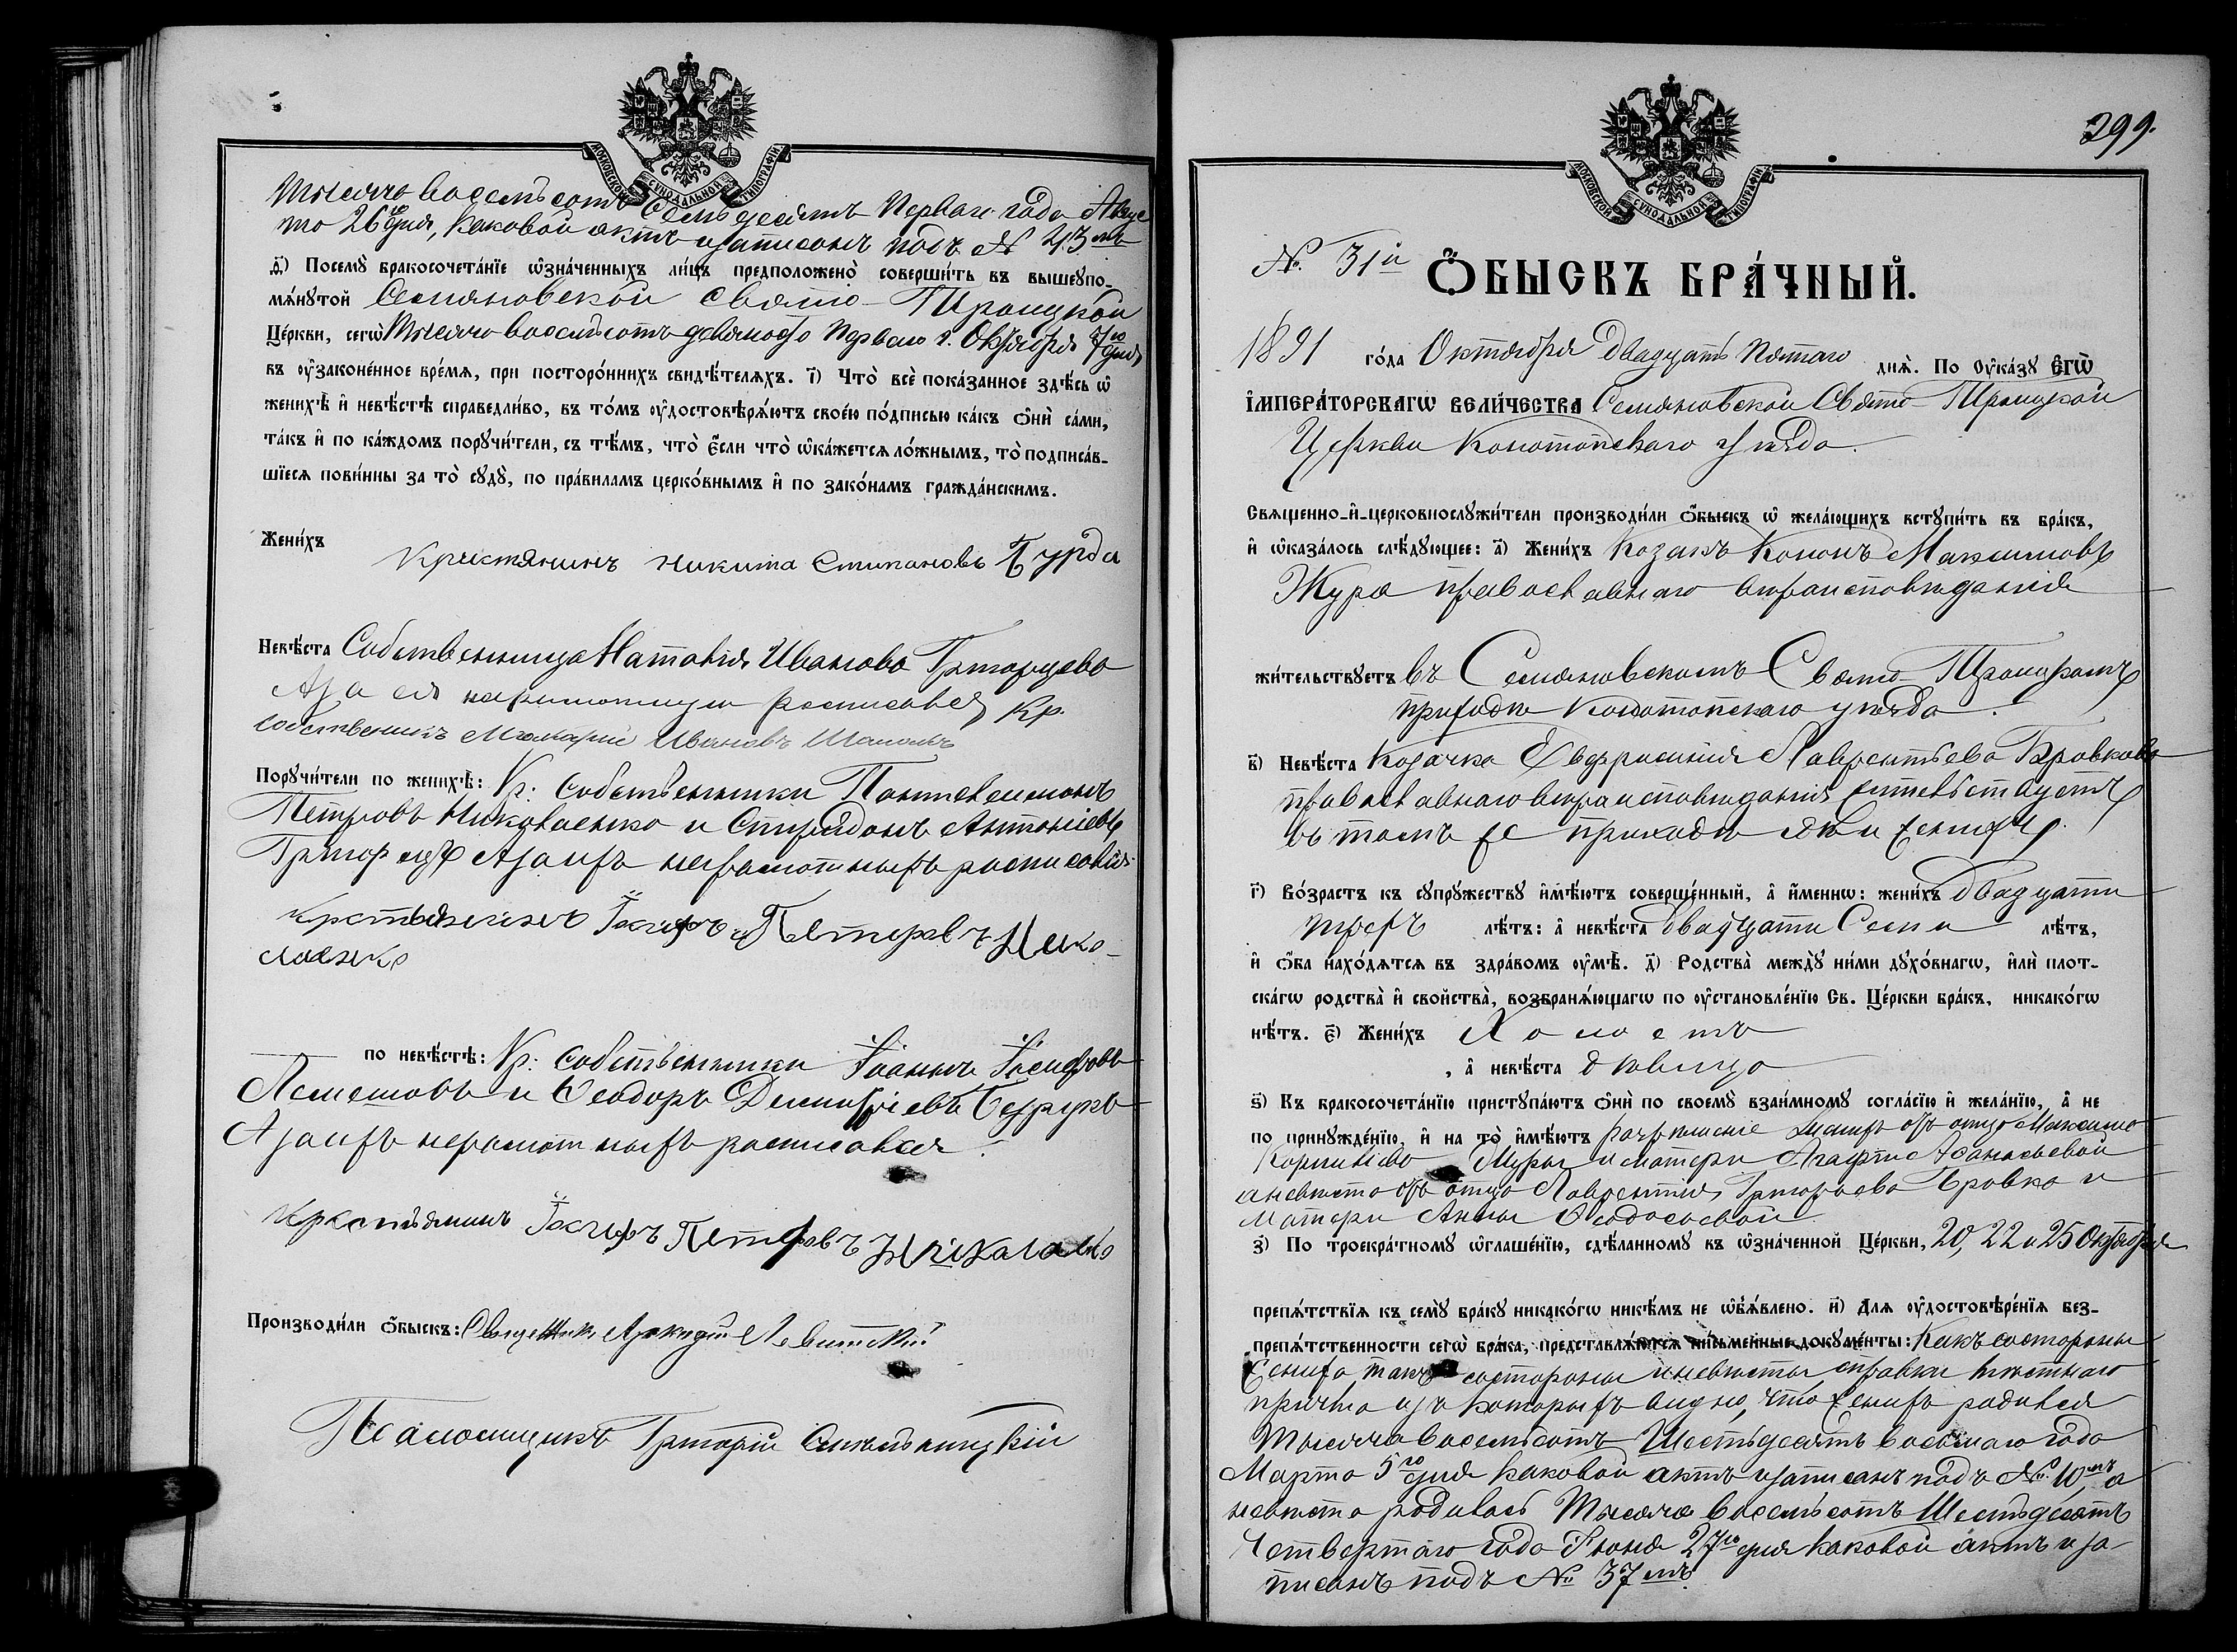 МОСКОВСКОЙ СУНОДАЛЬНОЙ ТИПОГРАФІИ
Тысяча восемьсотъ семьдесятъ перваго года Авгус
та 26го дня, каковой актъ и записанъ подъ № 43мъ
д҃) Посемꙋ̀ бракосочета́нїе ѡ҆зна́ченныхъ ли́цъ предположено̀ соверши́ть въ вышеꙋпо-
мѧ́нꙋтой Семяновской Свято-Троицкой
Це́ркви, сегѡ̀ Тысяча восемьсотъ девяносто перваго г. Октября 7го дня
въ ᲂу҆законе́нное вре́мѧ, при посторо́ннихъ свидѣ́телѧхъ. і҃) Что̀ всѐ пока́занное здѣ́сь ѡ҆
женихѣ̀ и҆ невѣ́стѣ справедли́во, въ то́мъ ᲂу҆достовѣрѧ́ютъ свое́ю по́дписью ка́къ ѻ҆нѝ са́ми,
та́къ и҆ по ка́ждомъ порꙋчи́тели, съ тѣ́мъ, что̀ є҆́сли что̀ ѡ҆ка́жетсѧ ло́жнымъ, то̀ подписа́в-
шїесѧ пови́нны за то̀ сꙋдꙋ̀, по пра́виламъ церко́внымъ и҆ по зако́намъ гражда́нскимъ.
Жени́хъ
Кристянинъ Никита Стипановъ Бурда
Невѣ́ста Собственница Наталія Иванова Григорцева
А за ея неграмотную росписався Кр.
собственикъ Макарий Ивановъ
Порꙋчи́тели по женихѣ̀: Кр: собственники Пантелеимонъ
Петровъ Николаенко и Спиридонъ Антоніевъ
Григорцъ А за ихъ неграмотныхъ росписався
крстьянинъ Іосифъ Петровъ Нико-
лаенко
по невѣ́стѣ: Кр: собственники Іоаннъ Іосифовъ
Лемешовъ и Ѳеодоръ Димитріевъ
А за ихъ неграмотныхъ росписався
Крестьянинъ Іосифъ Петровъ Николаенко
Производи́ли ѻ҆́быскъ: Священникъ Аркадій Левитскій
Псаломщикъ Григорій Синельницкій
299.
МОСКОВСКОЙ СУНОДАЛЬНОЙ ТИПОГРАФІИ
№. 31й ѺБЫСКЪ БРА́ЧНЫЙ.
1891 го́да Октября двадцать пятаго днѧ̀. По ᲂу҆ка́зꙋ Є҆ГѠ̀
І҆МПЕРА́ТОРСКАГѠ ВЕЛИ́ЧЕСТВА Семяновской Свято-Троицкой
Церкви Конотопскаго уѣзда.
Свѧщенно-и҆-церковнослꙋжи́тели производи́ли ѻ҆́быскъ ѡ҆ жела́ющихъ встꙋпи́ть въ бра́къ,
и҆ ѡ҆каза́лось слѣ́дꙋющее: а҃) Жени́хъ Козакъ Кононъ Максимовъ
Жура православнаго вѣроисповѣданія
жи́тельствꙋетъ въ Семяновскомъ Свято-Троицкомъ
приходѣ Конотопскаго уѣзда.
в҃) Невѣ́ста Козачка Евфросинія Лаврентьева Бровкова
православнаго вѣроисповѣданія жительствуетъ
въ томъ же приходѣ якъ и женихъ.
г҃) Во́зрастъ къ сꙋпрꙋ́жествꙋ и҆мѣ́ютъ соверше́нный, а҆ и҆́меннѡ: жени́хъ двадцати
трехъ лѣ́тъ: а҆ невѣ́ста двадцати семи лѣ́тъ,
и҆ ѻ҆́ба нахо́дѧтсѧ въ здра́вомъ ᲂу҆мѣ̀. д҃) Родства̀ междꙋ̀ ни́ми дꙋхо́внагѡ, и҆лѝ плот-
ска́гѡ родства̀ и҆ свойства̀, возбранѧ́ющагѡ по ᲂу҆становле́нїю Св. Це́ркви бра́къ, никако́гѡ
нѣ́тъ. є҃) Жени́хъ Холостъ
, а҆ невѣ́ста дѣвица
ѕ҃) Къ бракосочета́нїю пристꙋпа́ютъ ѻ҆нѝ по своемꙋ̀ взаи́мномꙋ согла́сїю и҆ жела́нїю, а҆ не
по принꙋжде́нїю, и҆ на то̀ и҆мѣ́ютъ разрѣшеніе женихъ отъ отца Максима
Корнилiева Журы и матери Агафіи Аѳанасьевой
а невѣста отъ отца Лаврентия Григорьева Бровка и
матери Анны Ѳеодосьевой
з҃) По троекра́тномꙋ ѡ҆глаше́нїю, сдѣ́ланномꙋ въ ѡ҆зна́ченной Це́ркви, 20, 22 и 25 Октября
препѧ́тствїѧ къ семꙋ̀ бра́кꙋ никако́гѡ никѣ́мъ не ѡ҆б̾ѧ́влено. и҃) Длѧ ᲂу҆достовѣре́нїѧ без-
препѧ́тственности сегѡ̀ бра́ка, представлѧ́ютсѧ пи́сьменные докꙋме́нты: Какъ состороны
жениха такъ состороны и невѣсты справки мѣстнаго
причта изъ которыхъ видно, что женихъ родился
Тысяча восемьсотъ Шестьдесятъ восьмаго года
Марта 5го дня каковой актъ и записанъ подъ №. 10мъ, а
невѣста родилась Тысяча восемьсотъ Шестьдесятъ
Четвертаго года Іюня 27го дня каковой актъ и за-
писанъ подъ № 37мъ.